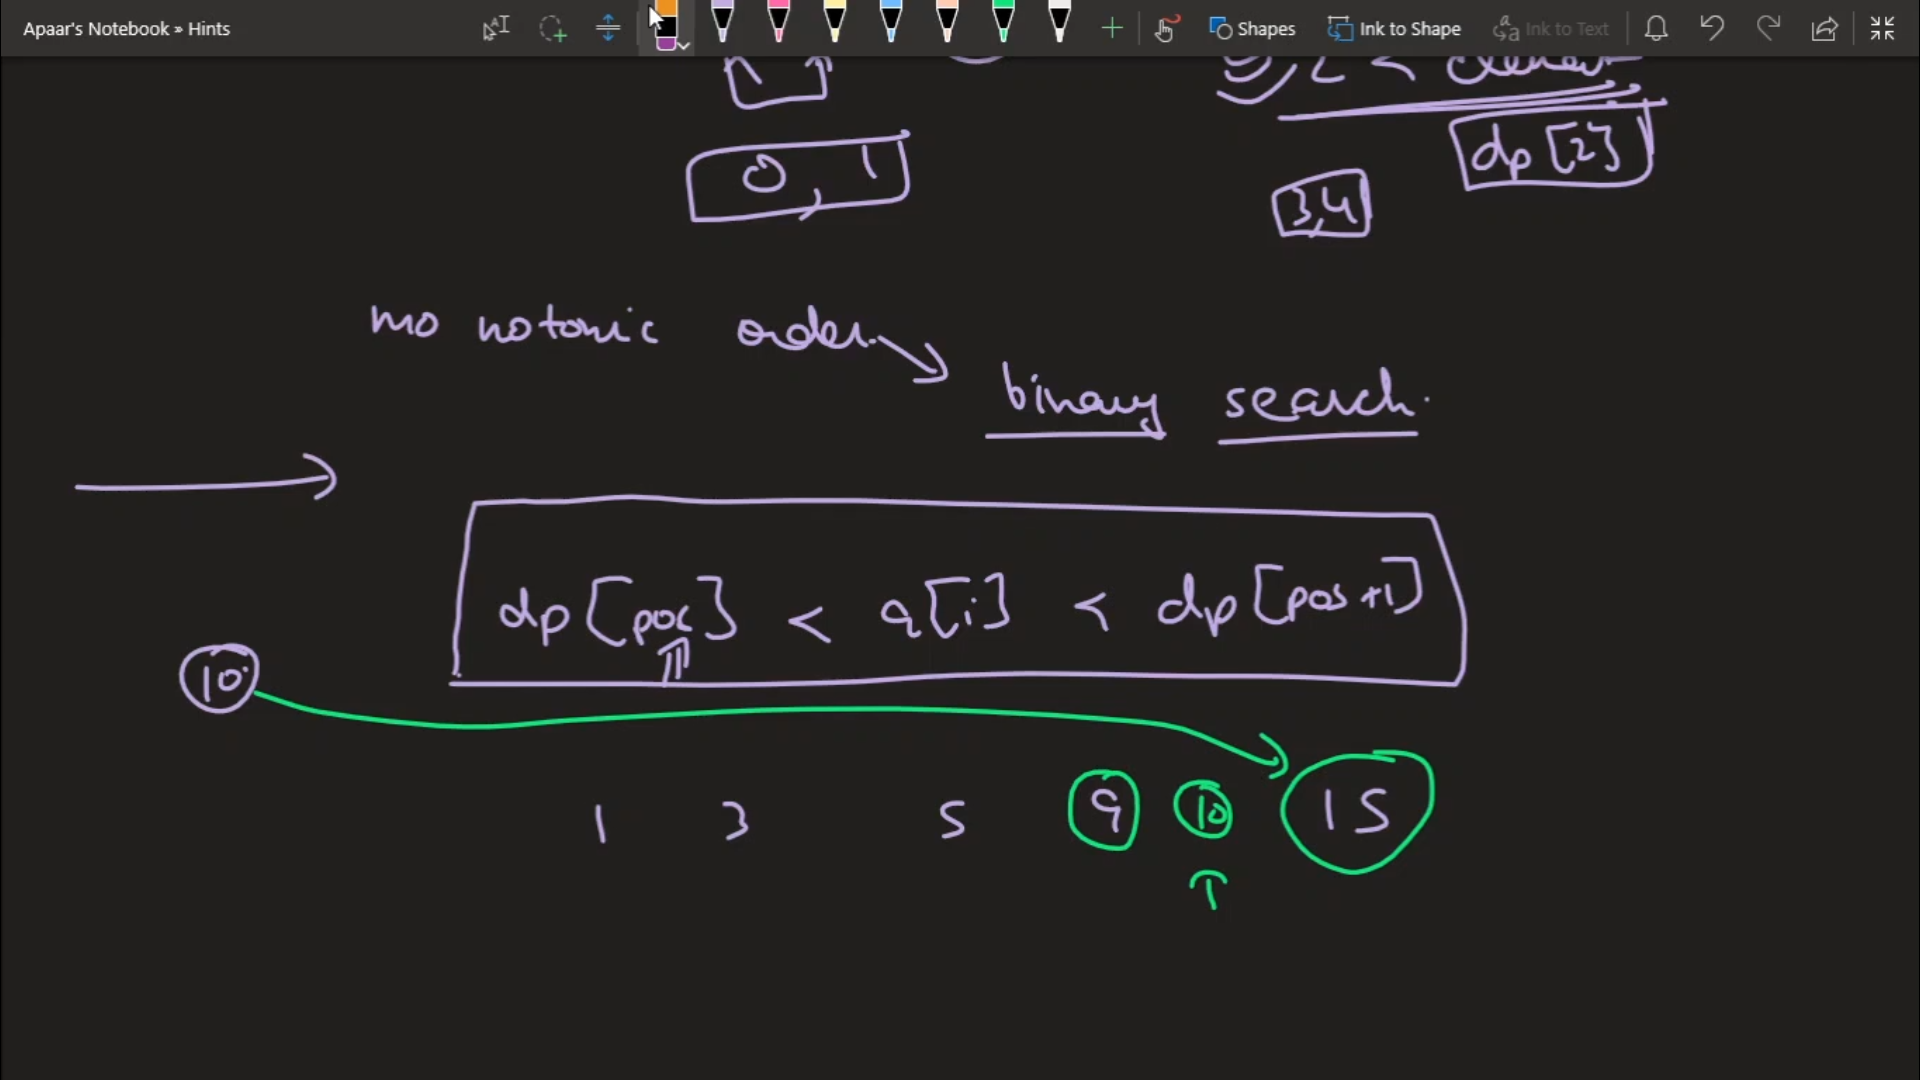 Apaar's Notebook » Hints
Shapes
Ink to Shape
Ink to Text
0, 1
dp[2]
3,4
monotonic order.
binary search.
dp[pos] < a[i] < dp[pos+1]
10
1 3 5 9 10 15